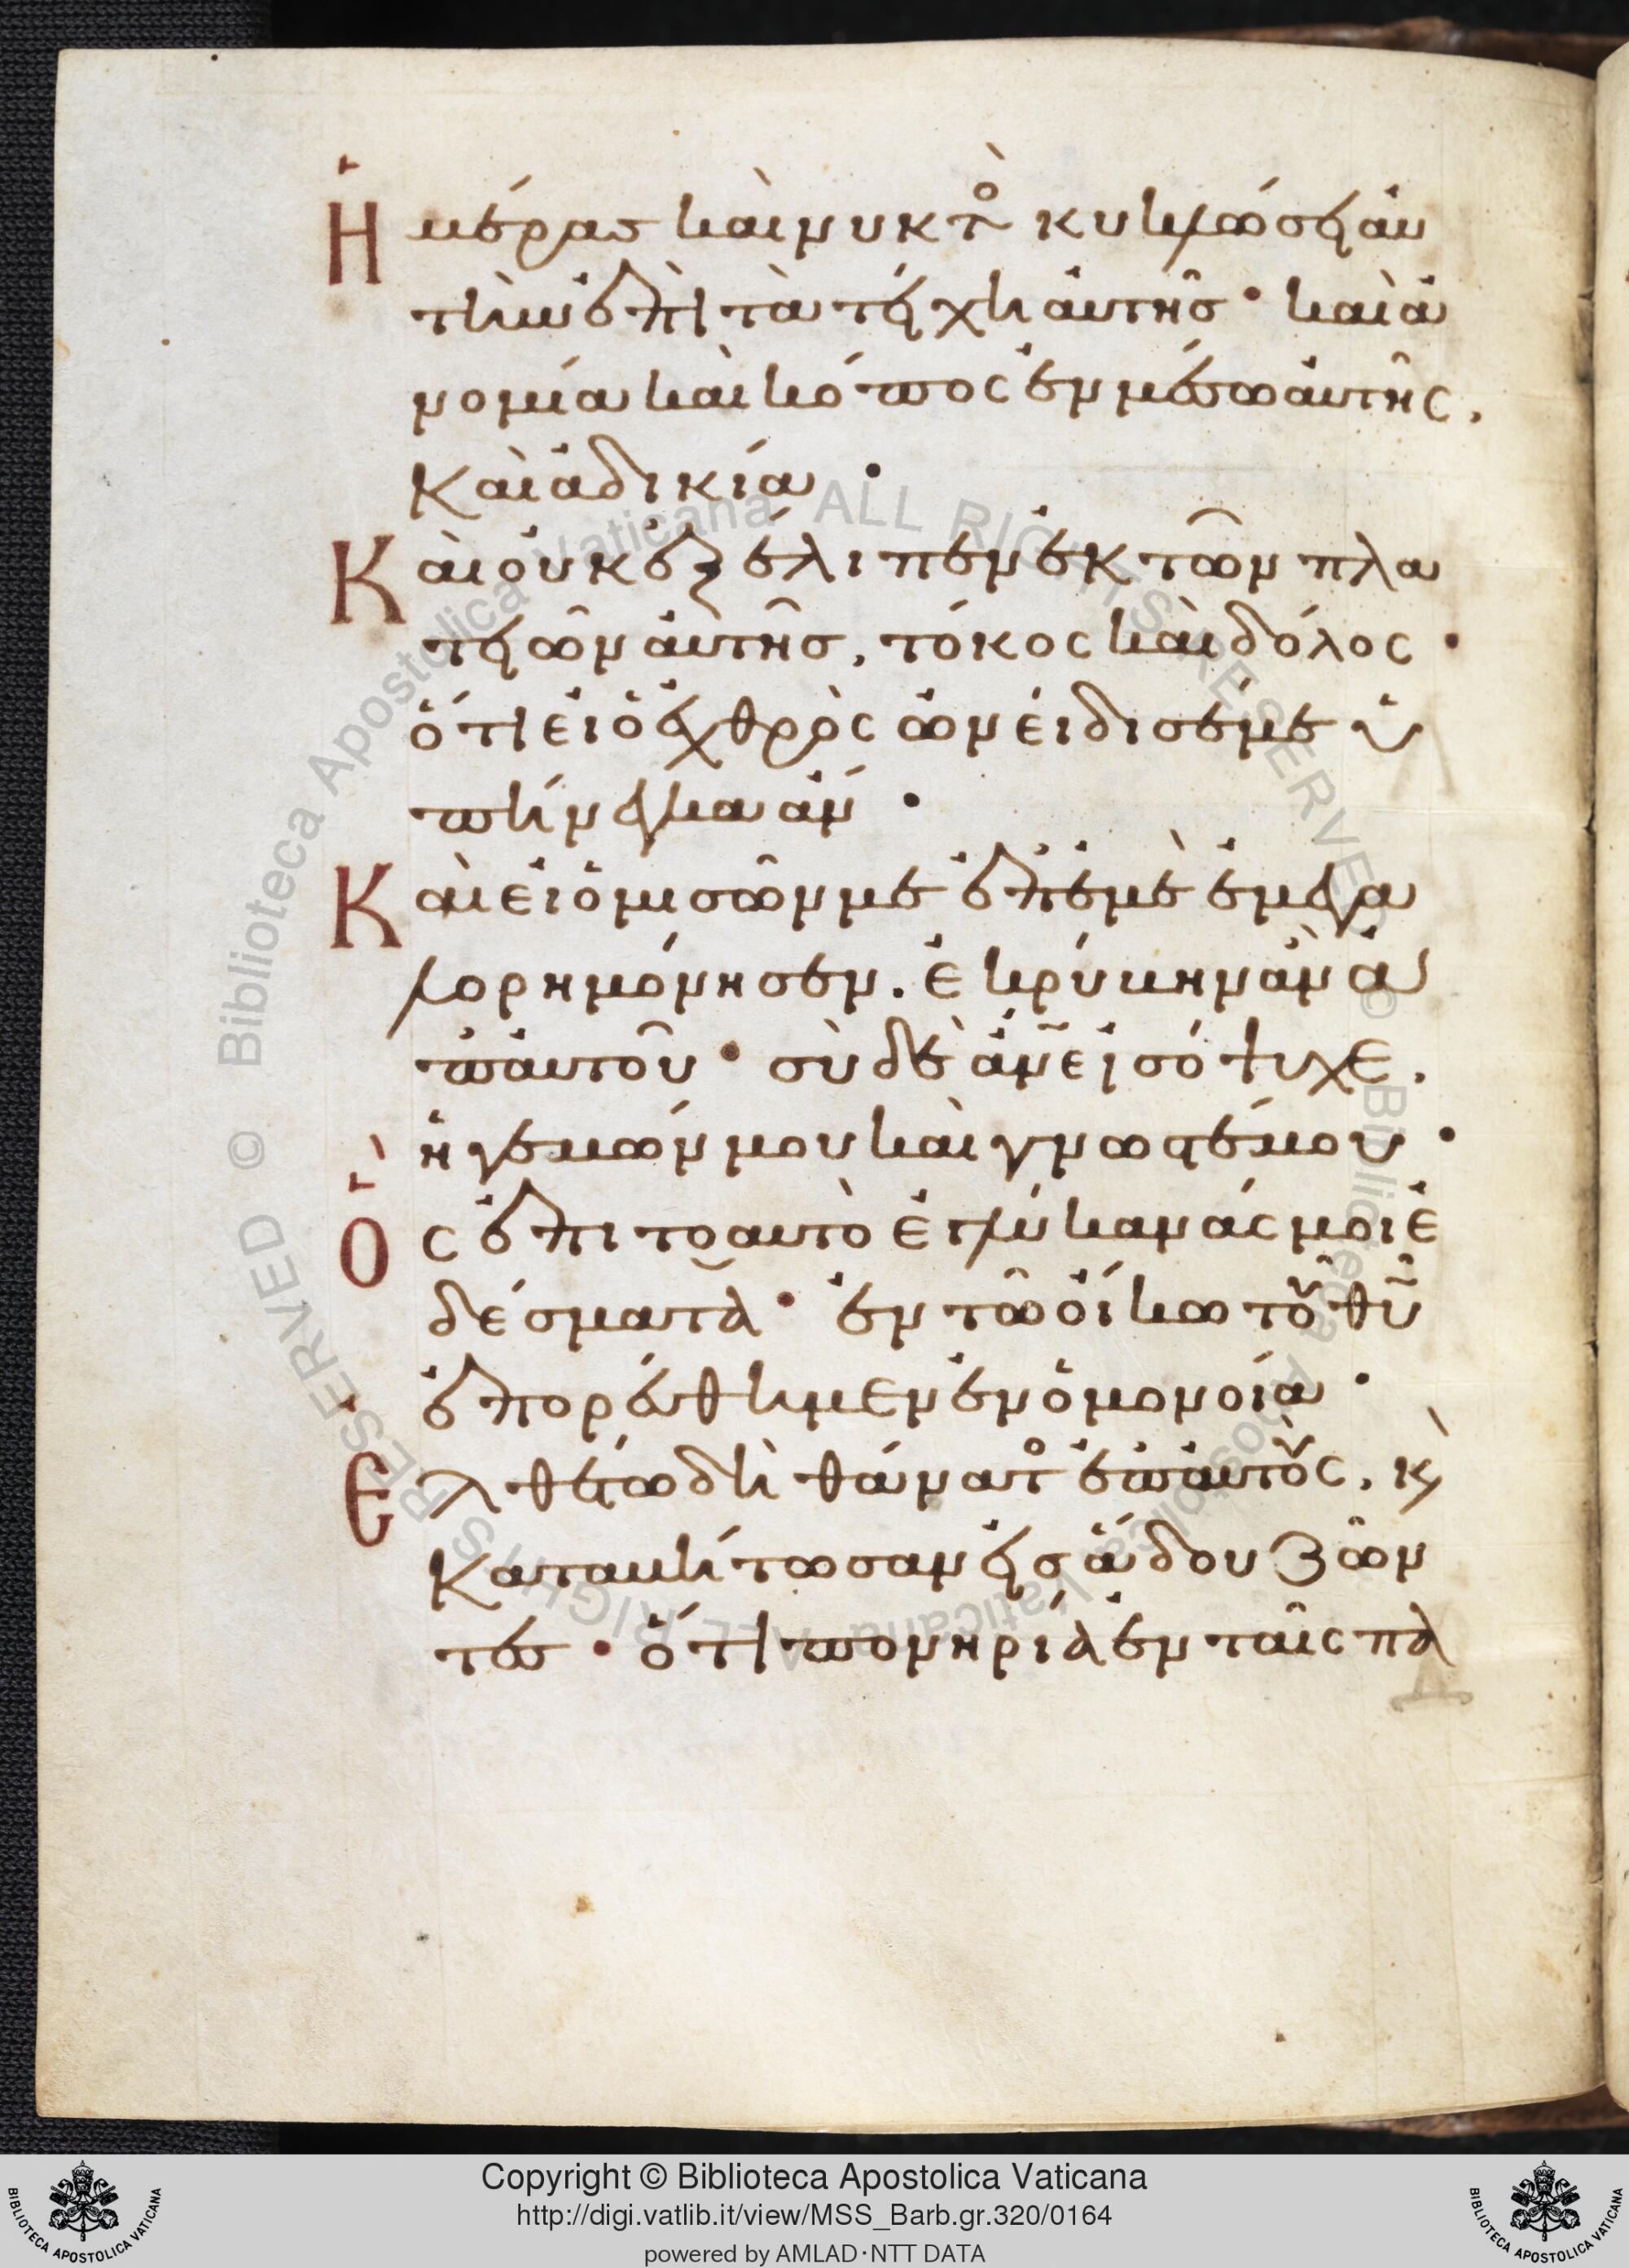 Ἡμέρας καὶ νυκτὸ κυκλώσει αὐ
τὴν ἐπὶ τὰ τείχη αὐτῆς· καὶ ἀ
νομία καὶ κόπος ἐν μέσω αὐτῆς,
Καὶ ἀδικία·
Καὶ οὐκ ἐξέλιπεν ἐκ τῶν πλα
τειῶν αὐτῆς, τόκος καὶ δόλος·
ὅτι εἰ ὁ ἐχθρὸς ὠνείδισέν με ὑ
πήνεγκα ἄν·
Καὶ εἰ ὁ μισῶν με ἐπ' ἐμὲ ἐμεγα
λορημόνησεν. ἐκρύβην ἂν ἀ
π' αὐτοῦ· σὺ δὲ ἄνε ἰσόψυχε,
ἡγεμών μου καὶ γνωστέ μου·
Ὃς ἐπιτοαυτὸ ἐγλύκανάς μοι ἐ
δέσματα· ἐν τῶ οἴκω τοῦ θυ
ἐπορεύθημεν ἐν ὁμονοία·
Ἐλθέτω δὴ θάνατο ἐπ' αὐτούς, κ
Καταβήτωσαν εἰς ἅδου ζῶν
τες· ὅτι πονηρία ἐν ταῖς πα
Copyright © Biblioteca Apostolica Vaticana
http://digi.vatlib.it/view/MSS_Barb.gr.320/0164
powered by AMLAD·NTT DATA
BIBLIOTECA APOSTOLICA VATICANA
BIBLIOTECA APOSTOLICA VATICANA